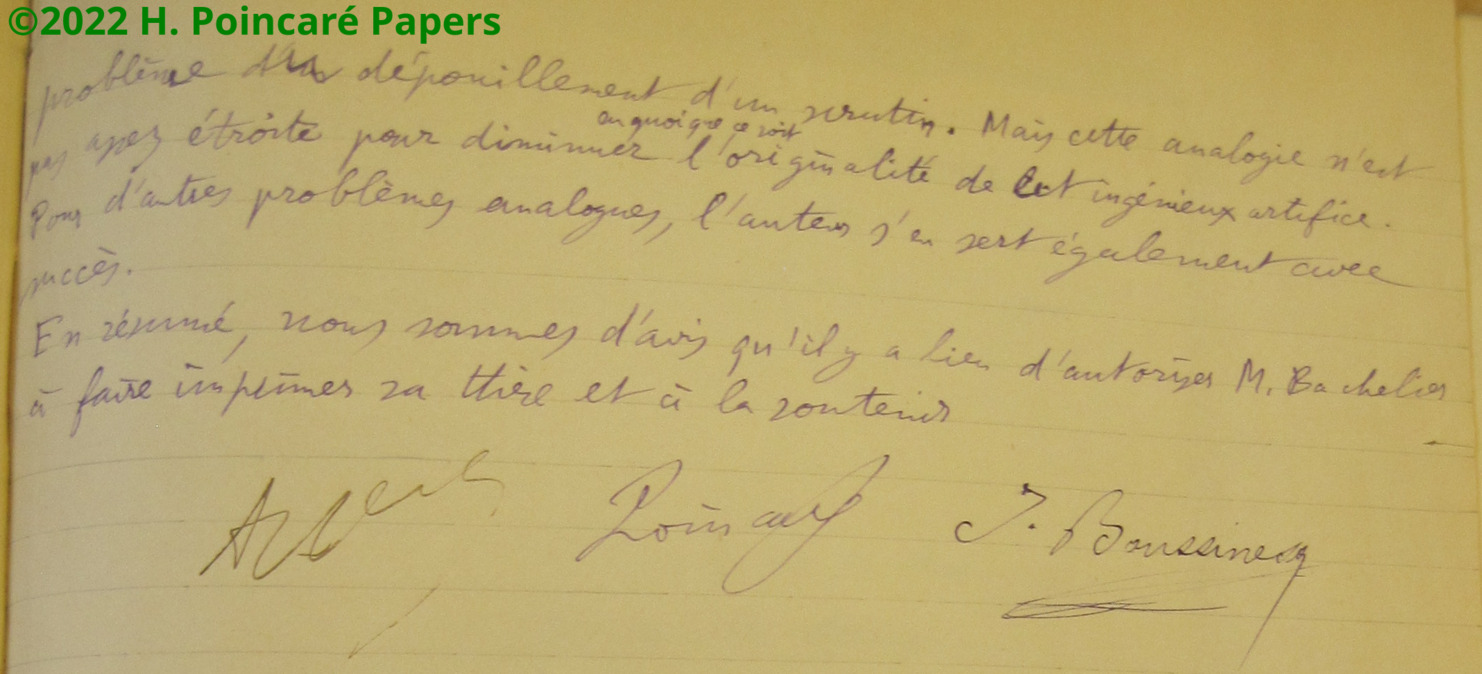 ©2022 H. Poincaré Papers
problème du dépouillement d'un scrutin. Mais cette analogie n'est
en quoi que ce soit
pas assez étroite pour diminuer l'originalité de cet ingénieux artifice.
Pour d'autres problèmes analogues, l'auteur s'en sert également avec
succès.
En résumé, nous sommes d'avis qu'il y a lieu d'autoriser M. Bachelier
à faire imprimer sa thèse et à la soutenir
Appell
Poincaré
J. Boussinesq